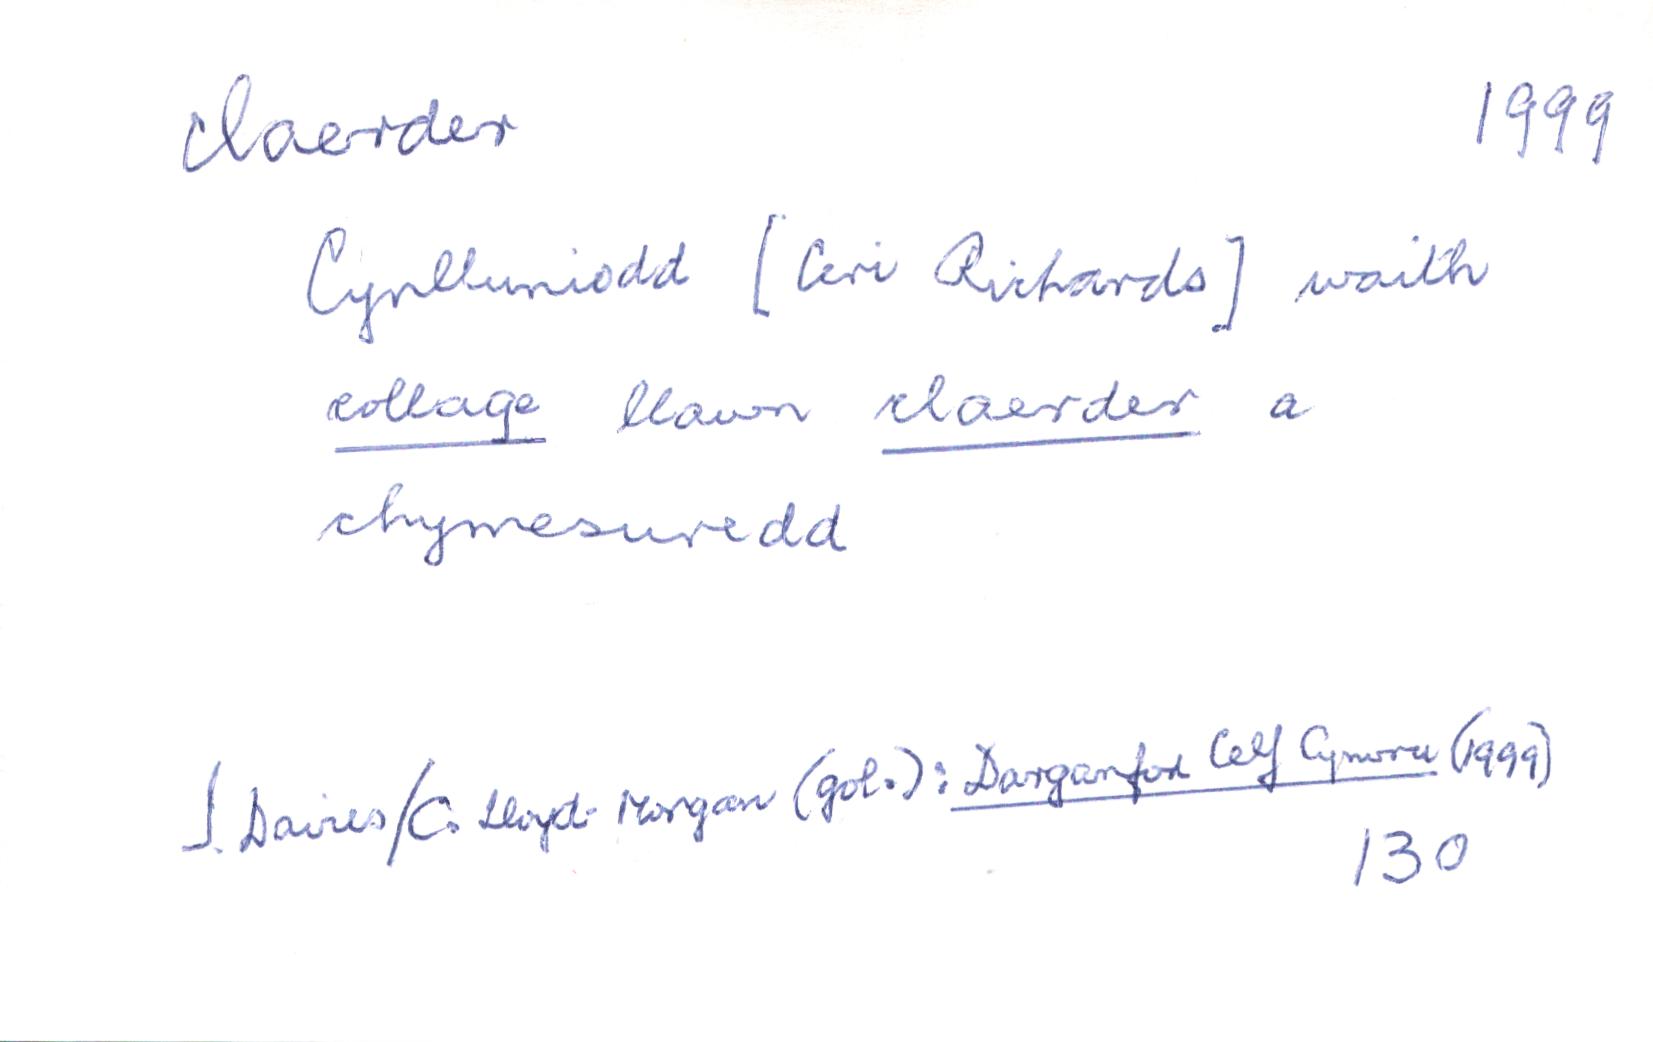 claerder 1999
Cynlluniodd [Ceri Richards] waith
collage llawn claerder a
chymesuredd
I. Davies/C. Lloyd-Morgan (gol.): Darganfod Celf Cymru (1999)
130